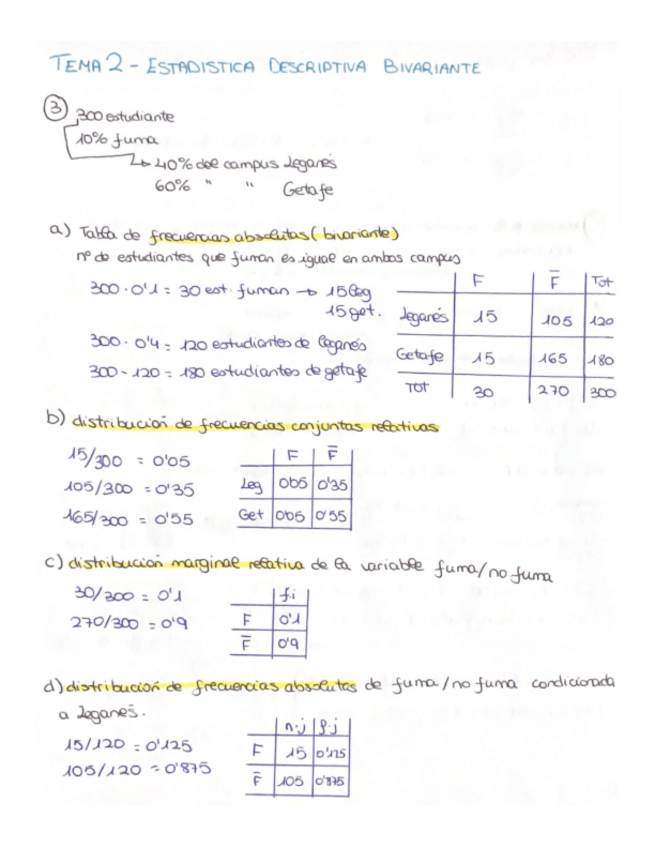 TEMA 2 - ESTADISTICA DESCRIPTIVA BIVARIANTE
③ 300 estudiante
10% fuma
↳ 40% del campus leganés
60% " " Getafe
a) Tabla de frecuencias absolutas (bivariante)
nº de estudiantes que fuman es igual en ambos campus
300 · 0'1 = 30 est. fuman → 15 leg
15 get.
300 · 0'4 = 120 estudiantes de leganés
300 - 120 = 180 estudiantes de getafe
F F̄ Tot
leganés 15 105 120
Getafe 15 165 180
TOT 30 270 300
b) distribución de frecuencias conjuntas relativas
15/300 = 0'05
105/300 = 0'35
165/300 = 0'55
F F̄
Leg 0'05 0'35
Get 0'05 0'55
c) distribución marginal relativa de la variable fuma/no fuma
30/300 = 0'1
270/300 = 0'9
f.i
F 0'1
F̄ 0'9
d) distribución de frecuencias absolutas de fuma/no fuma condicionada
a leganés.
15/120 = 0'125
105/120 = 0'875
n.j f.j
F 15 0'125
F̄ 105 0'875